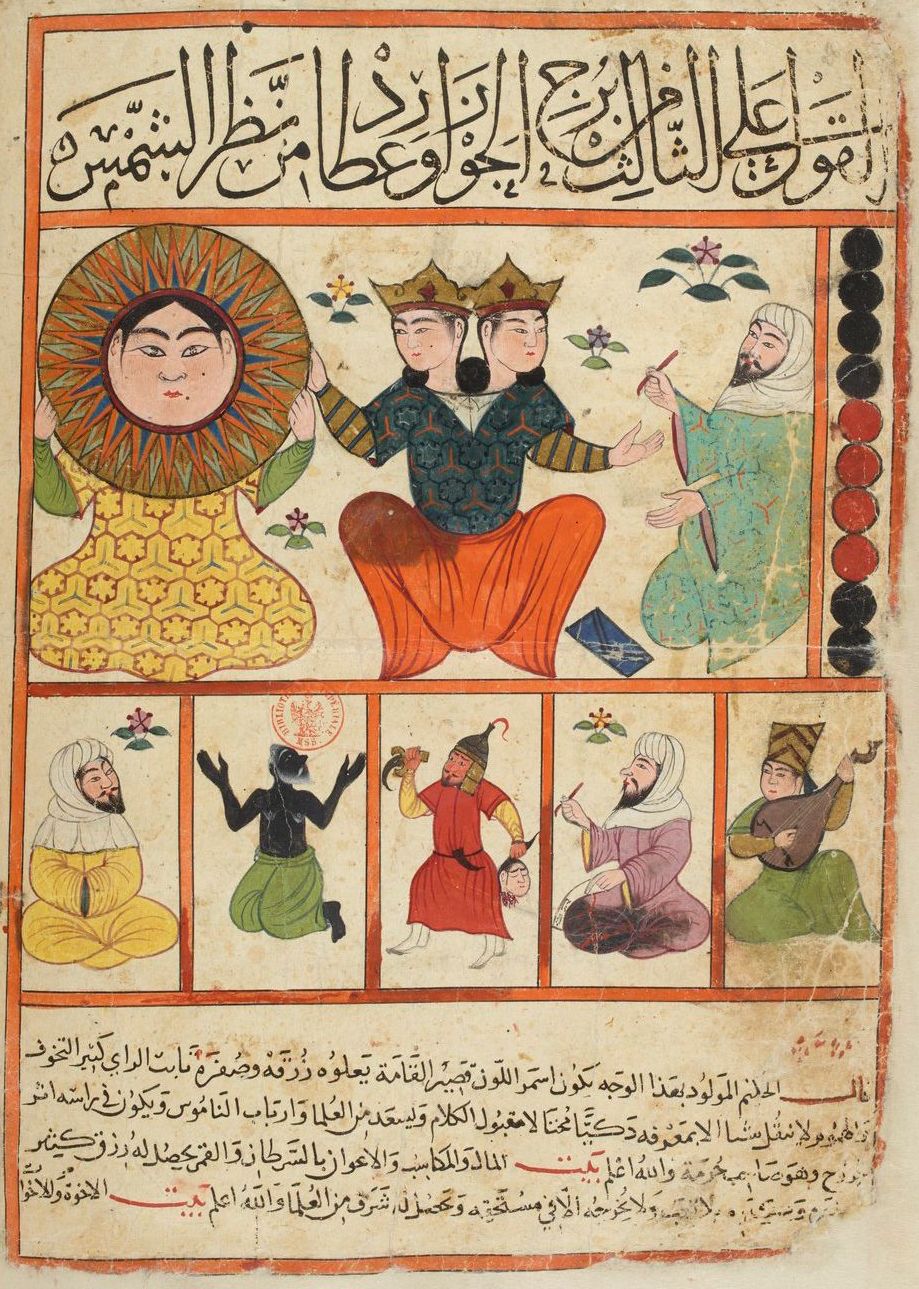 القول على الثالث من برج الجوزا وعطارد من نظر الشمس
MSS.
قال الحكيم المولود بهذا الوجه يكون اسمر اللون قصير القامة يعلوه زرقة وصفرة ثابت الراي كثير التخوف
ولا ينقل شيا الا بمعرفه ذكيا مقبول الكلام ويسعد من العلما وارباب الناموس ويكون في راسه اثر
والله اعلم بيت المال والمكاسب والاعوان بالسرطان والقمر يحصل له رزق كثير
ولا يخرجه الا في مستحقه ويحصل له شرف من العلما والله اعلم بيت الاخوة والاخوا